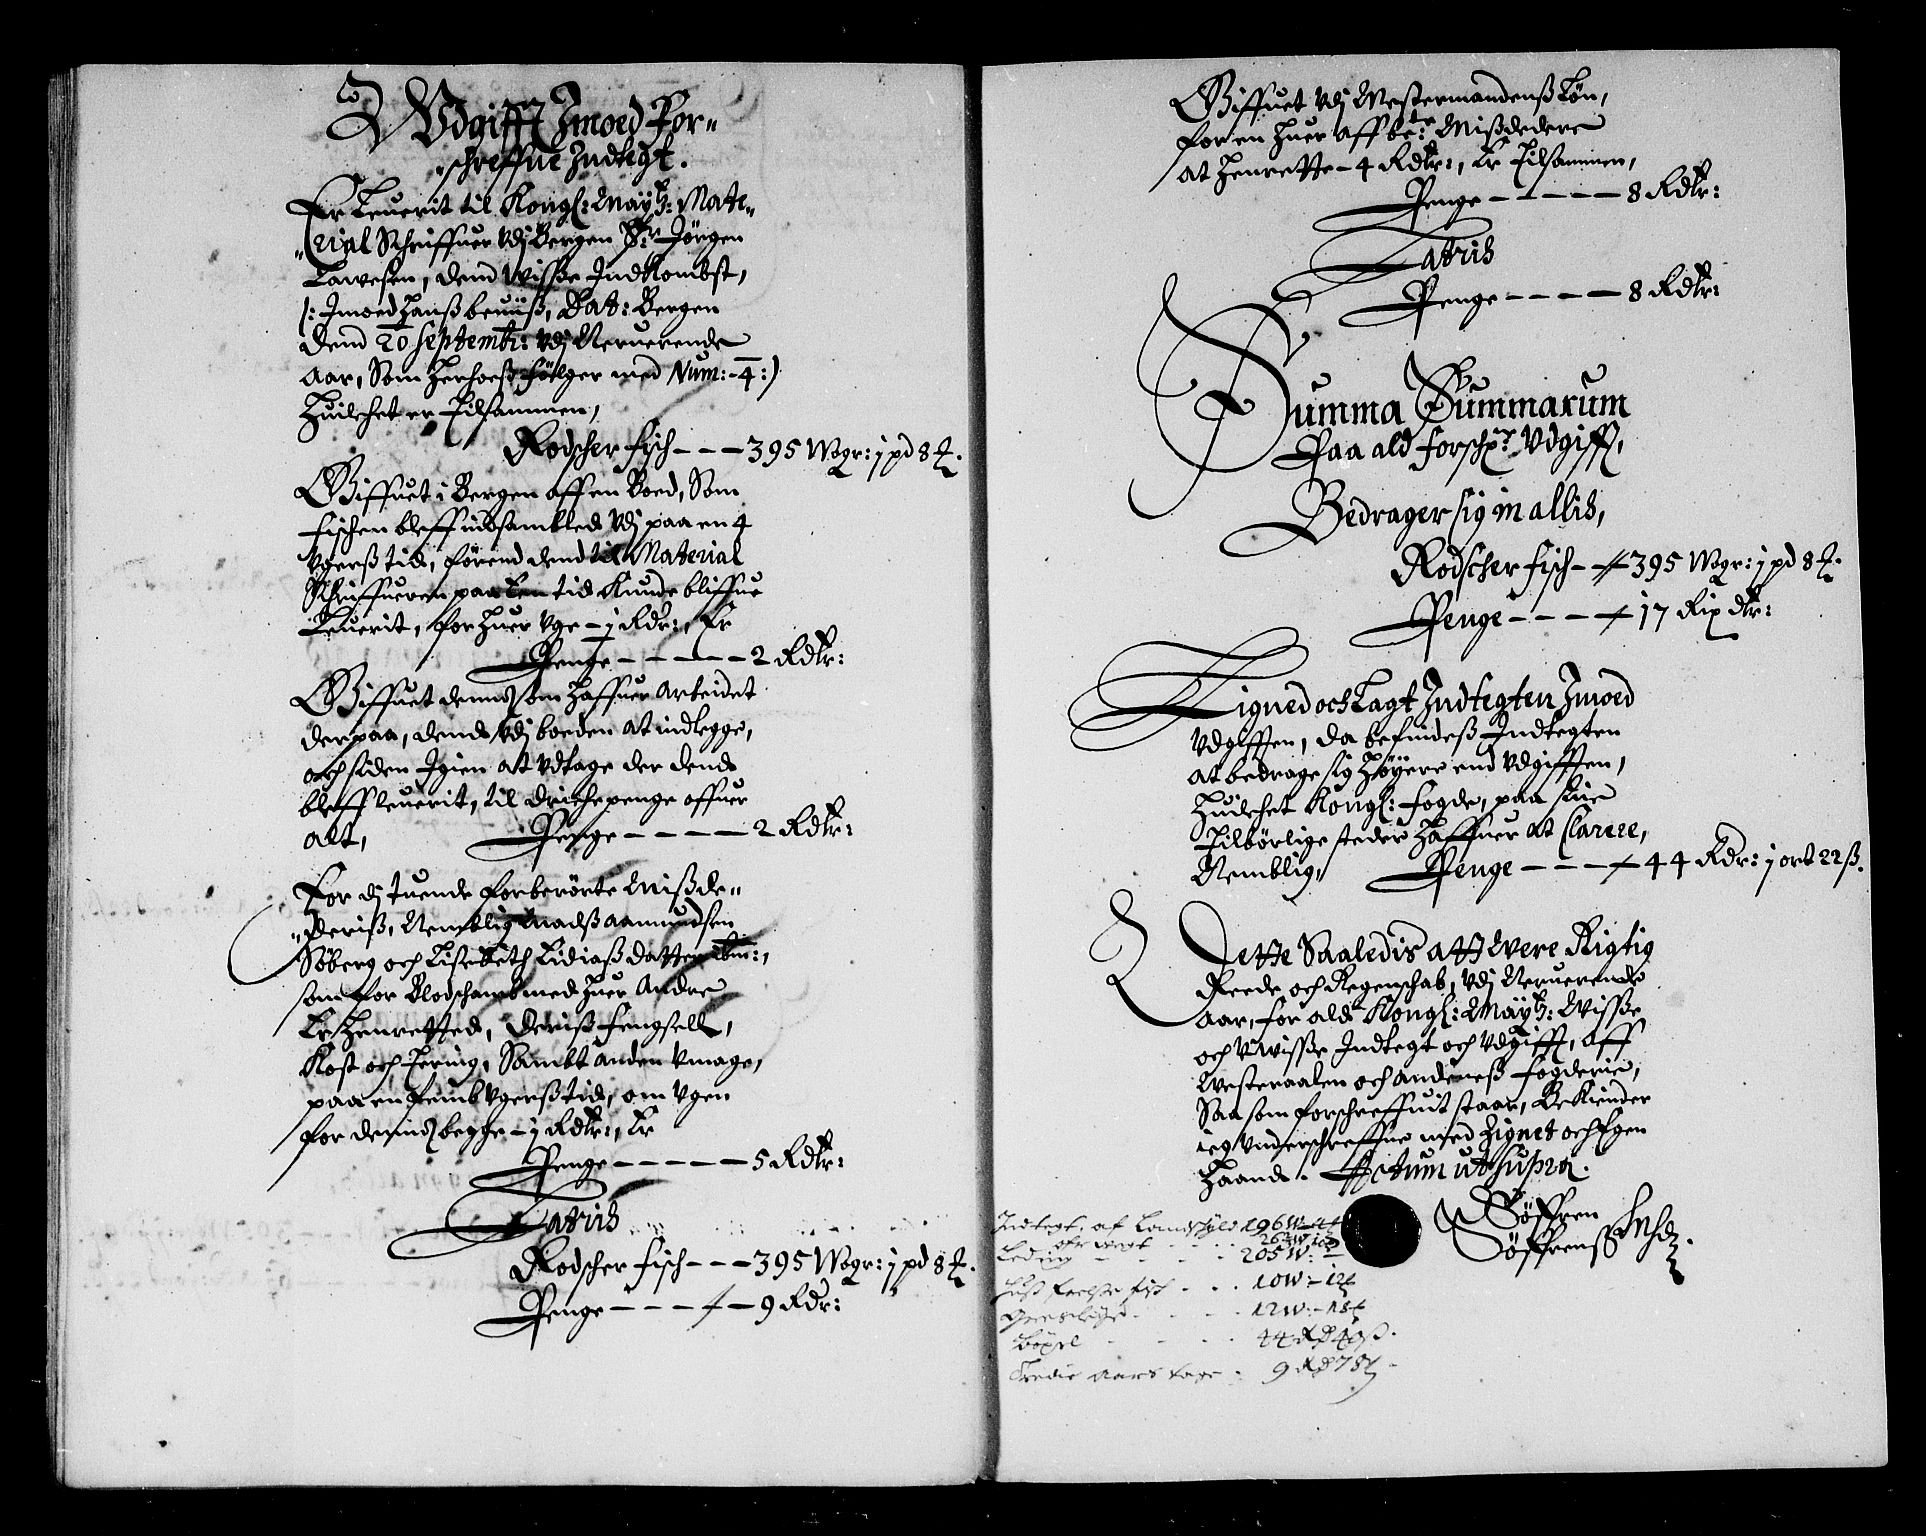 Udgifft Imoed For=
schreffne Indtegt.
Er Leuerit til Kongl: Maytz: Mate=
=rial Schriffuer Vdj Bergen Sr: Jörgen
Lawesen, dend Wisse Indkombst,
/: Imoed Hanß beuiiß, Dat: Bergen
Dend 20 Septemb: Vdj Neruerende
Aar, Som Herhoeß fölger med Num: 4 :/
Huilchet er Tilsammen,
Rodscher fisch - - - 395 Wogr: j pd 8 ℔.
Giffuet i Bergen aff en Boed, Som
fischen bleff indsamblede Vdj paa en 4
Vgerß tid, förend dend til Material
Schriffueren paa En tid Kunde bliffue
Leuerit, for huer Vge - j Rdr:, Er
Penge - - - - - 2 Rdlr:
Giffuet dennd som Haffuer Arbeidet
derpaa, dend Vdj boeden at indlegge,
och siden Igien at Vdtage der dend
bleff leuerit, til drichepenge offuer
alt, Penge - - - - - 2 Rdlr:
For dj tuende forberörte Mißde=
=deriß, Nemblig Madß Aamundsen
Söberg och Lisebeth Lidiaß datter ibm:,
som for Blodscham med huer Andre
Er Henretted, Deriß fengsell,
Kost och Tering, Sambt anden Vmage,
paa en femb Vgerß tid, om Vgen
for dennd begge - j Rdlr:, Er
Penge - - - - - 5 Rdlr:
Latris
Rodscher fisch - - - 395 Wogr: j pd 8 ℔.
Penge - - - - 9 Rdr:
Giffuet Vdj Mestermandenß Lön,
for en huer aff bete: Mißdedere
at Henrette - 4 Rdlr:, Er Tilsammen,
Penge - - - - - 8 Rdlr:
Latris
Penge - - - - 8 Rdlr:
Summa Summarum
Paa ald forschr: Vdgifft,
Bedrager sig in allis,
Rodscher fisch - - 395 Wogr: j pd 8 ℔.
Penge - - - - 17 Rix dlr:
Ligned och Lagt Indtegten Imoed
Vdgifften, da befindeß Indtegten
at bedrage sig Höyere end Vdgifften,
Huilchet Kongl: fogde, paa sine
Tilbörlige steder Haffuer at Clarere,
Nemblig, Penge - - - - 44 Rdr: j ort 22 ß.
Dette Saaledis att Were Rigtig
Reede och Regenschab, Vdj Neruerende
Aar, for ald Kongl: Maytz: Wisse
och Uwisse Indtegt och Vdgifft, aff
Westeraalen och Andeneß fogderie,
Saa som forschreffuit staar, Bekiender
ieg Vnderschreffne med Zignet och Egen
Haand. Actum ut supra.
Söffren
Söffrenß
Indtegt. af Landschyld 196 W
205 W:
fisch - - - 10 W - 12 ℔
12 W: - 18 ℔
Böxel - - - - 44 Rd 40 ß.
Tredie Aars tage - 9 Rd 78